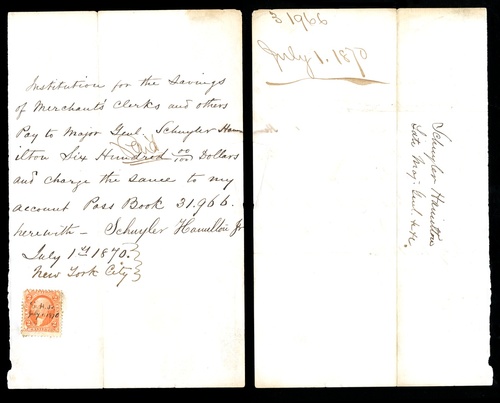 Institution for the Savings
of Merchants' Clerks and others
Pay to Major Genl. Schuyler Ham
ilton Six Hundred 00/100 Dollars
Paid
and charge the same to my
account Pass Book 31.966.
herewith - Schuyler Hamilton Jr
July 1st 1870.
New York City
31966
July 1. 1870
Schuyler Hamilton
Late Maj. Genl.